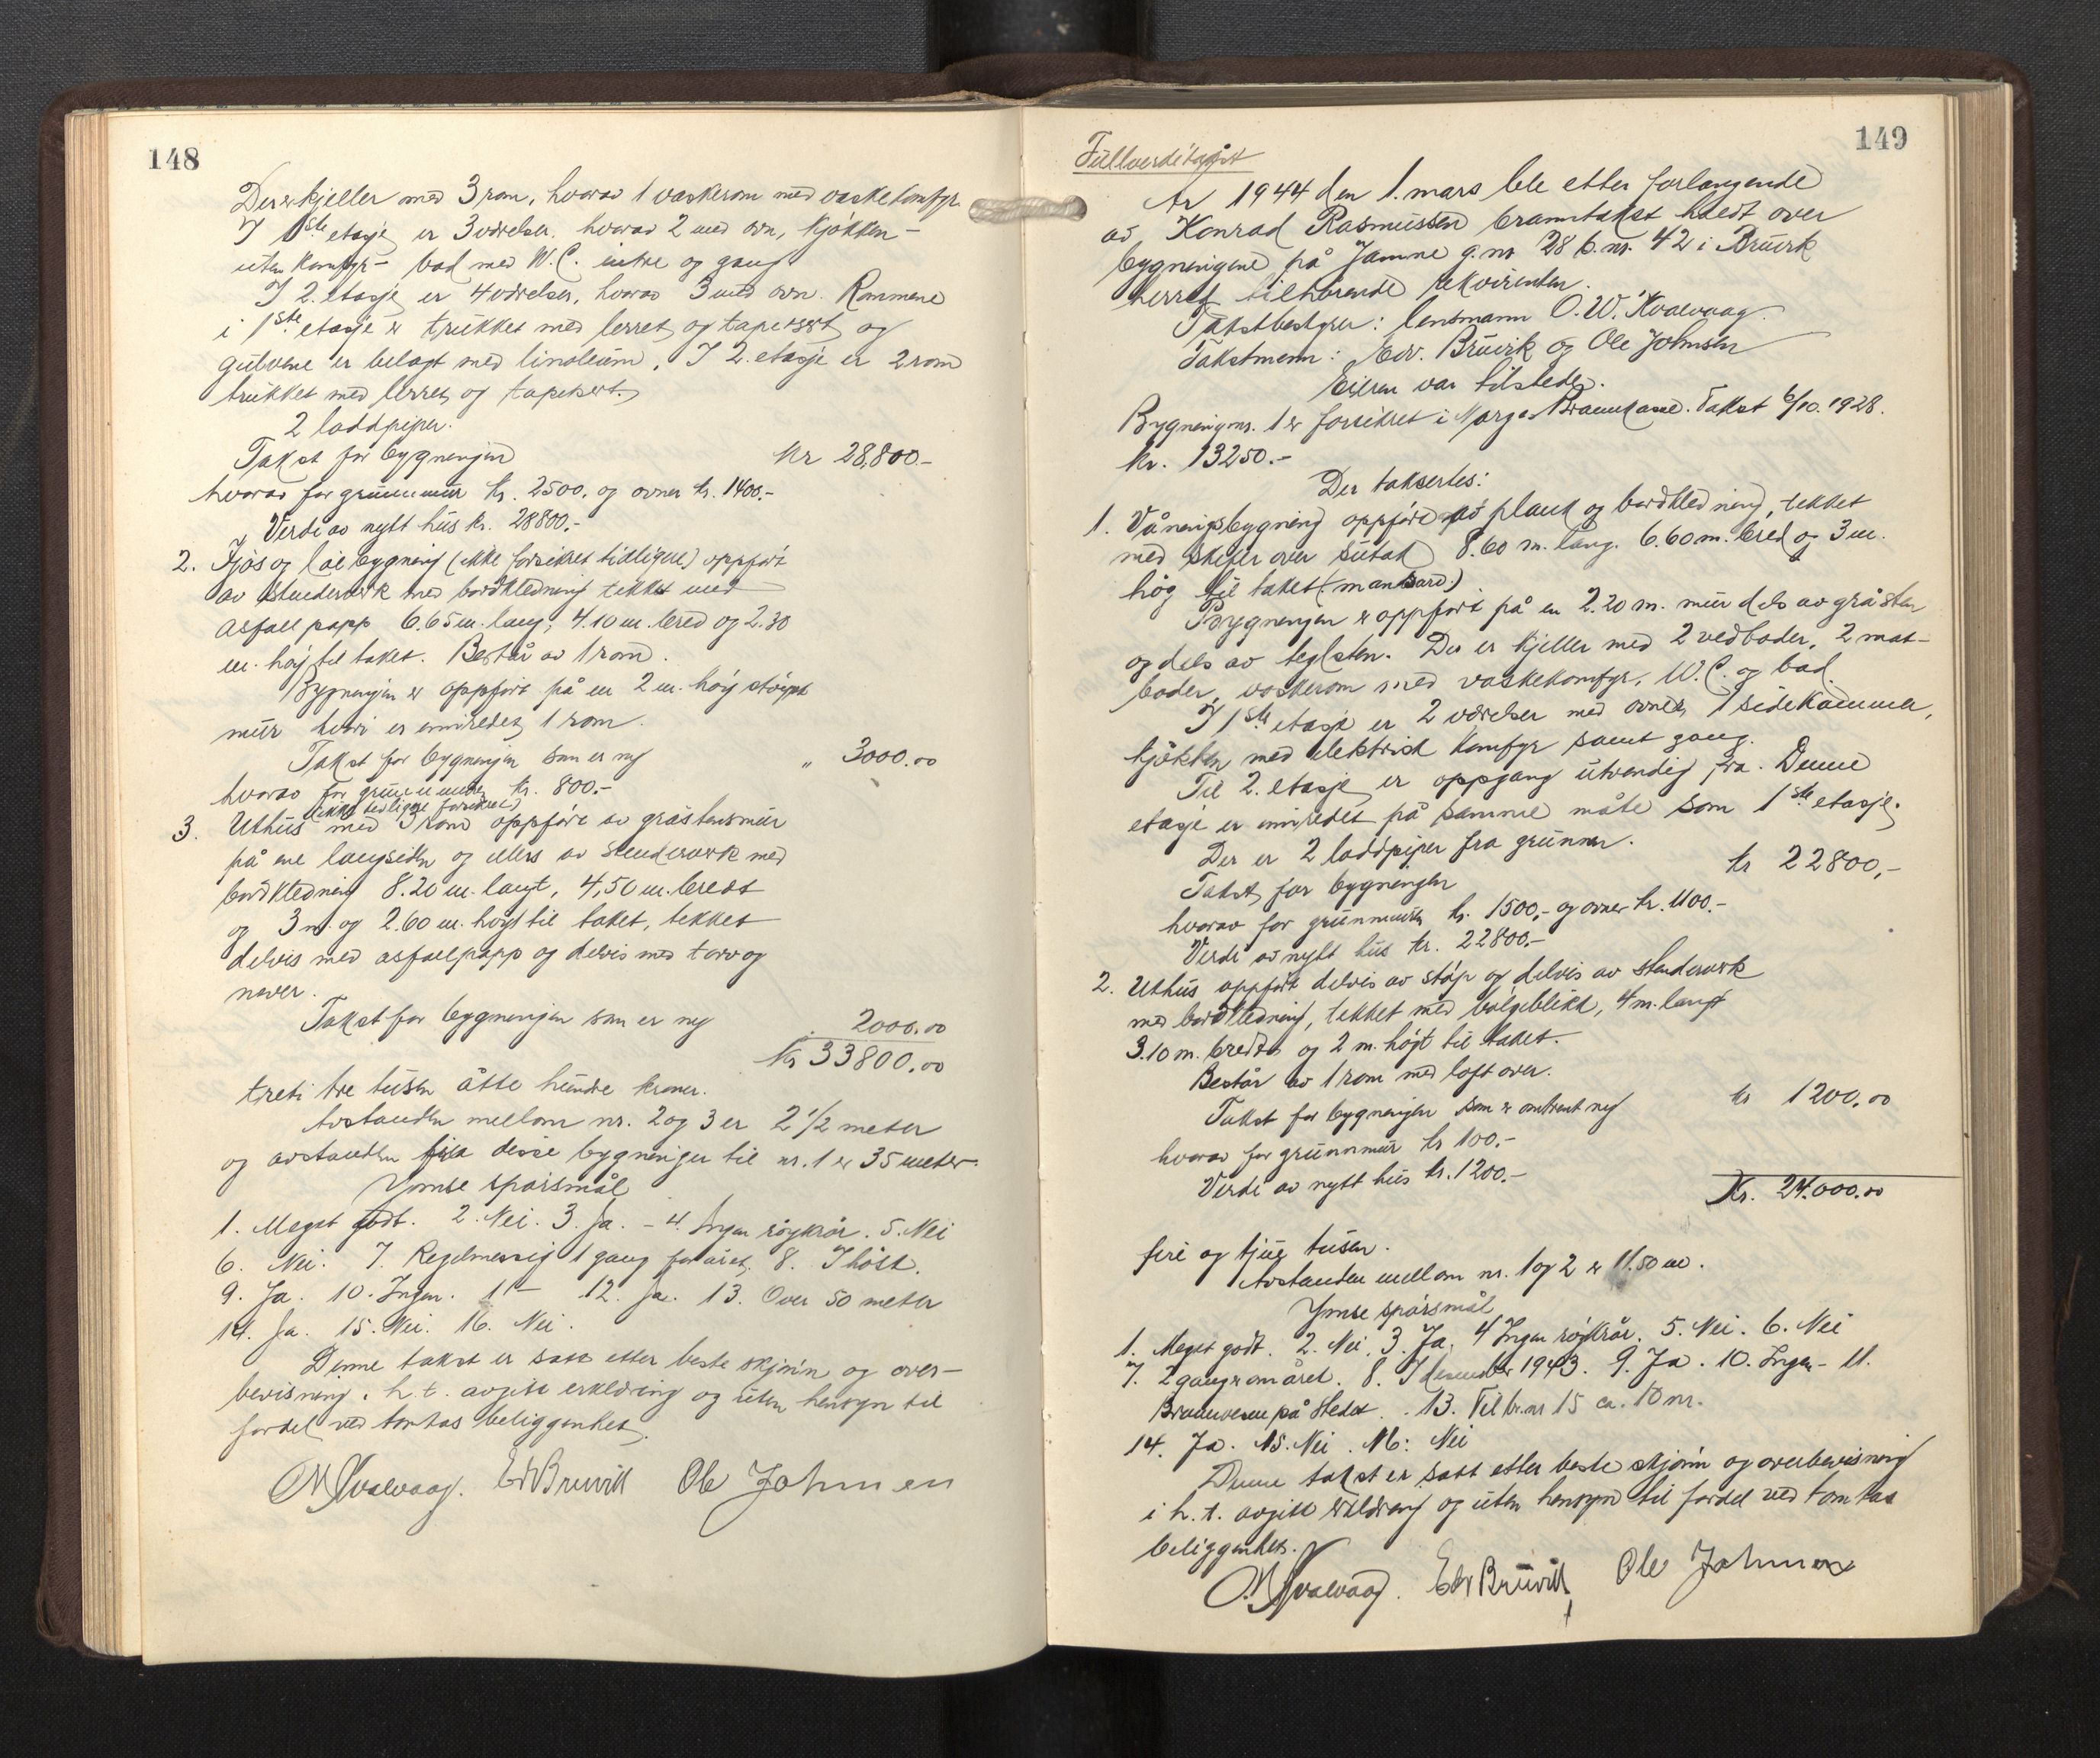 148
Der er kjeller med 3 rom, hvorav 1 vaskerom med vaskekomfyr.
I 1ste etasje er 3 værelser, hvorav 2 med ovn, kjøkken
uten komfyr - bad med W.C. indre og gang
I 2. etasje er 4 værelser, hvorav 3 med ovn. Rommene
i 1ste etasje er trukket med lerret og tapetsert og
gulvene er belagt med linoleum. I 2. etasje er 2 rom
trukket med lerret og tapetsert.
2 loddpiper.
Takst for bygningen Kr 28,800.-
hvorav for grunnmur kr. 2500. og ovner kr. 1400.-
Verdi av nytt hus kr. 28800.-
2. Fjøs og løebygning (ikke forsikret tidligere) oppført
av stenderverk med bordkledning tekket med
asfaltpapp 6.65 m. lang, 4.10 m. bred og 2.30
m. høj til taket. Består av 1 rom.
Bygningen er oppført på en 2 m. høj støypt
mur hvori er innredet 1 rom.
Takst for bygningen som er ny " 3000.00
hvorav for grunnmuren kr. 800.-
(ikke tidligere forsikret)
3. Uthus med 3 rom oppført av gråstensmur
på ene langsiden og ellers av stenderverk med
bordkledning 8.20 m. langt, 4,50 m. bredt
og 3 m. og 2.60 m. høgt til taket, tekket
delvis med asfaltpapp og delvis med torv og
never.
Takst for bygningen som er ny 2000.00
Kr 33800.00
treti tre tusen åtte hundre kroner.
Avstanden mellom nr. 2 og 3 er 2 1/2 meter
og avstanden fra desse bygninger til nr. 1 er 35 meter.
Ymse spørsmål
1. Meget godt. 2. Nei. 3. Ja. - 4. Ingen røykrør. 5. Nei
6. Nei. 7. Regelmessig 1 gang for året. 8. I høst.
9. Ja. 10. Ingen. 11 - 12. Ja. 13. Over 50 meter
14. Ja. 15. Nei. 16. Nei.
Denne takst er satt etter beste skjønn og over-
bevisning i h.t. avgitt erklæring og uten hensyn til
fordel ved tomtas beliggenhet.
O.W. Kvalvaag. Edv Bruvik Ole Johnsen
149
Fullverditakst
År 1944 den 1. mars ble etter forlangende
av Konrad Rasmussen branntakst holdt over
bygningene på Jamne g.nr 28 b.nr. 42 i Bruvik
herred tilhørende rekvirenten.
Takstbestyrer: lensmann O.W. Kvalvaag.
Takstmenn: Edv. Bruvik og Ole Johnsen
Eieren var tilstede.
Bygning nr. 1 er forsikret i Norges Brannkasse. Takst 6/10. 1928.
kr. 13250.-
Der taksertes:
1. Våningsbygning oppført av plank og bordkledning, tekket
med skifer over sutak 8.60 m. lang. 6.60 m. bred og 3 m.
høg til taket (mansard.)
Bygningen er oppført på en 2.20 m. mur dels av gråsten
og dels av teglsten. Der er kjeller med 2 vedboder, 2 mat-
boder, vaskerom med vaskekomfyr, W.C. og bad.
I 1ste etasje er 2 værelser med ovner 1 sidekammer,
kjøkken med elektrisk komfyr samt gang.
Til 2. etasje er oppgang utvendig fra. Denne
etasje er innredet på samme måte som 1ste etasje.
Der er 2 loddpiper fra grunnen.
Takst for bygningen kr 22800,-
hvorav for grunnmuren kr. 1500,- og ovner kr. 1100.-
Verdi av nytt hus kr. 22800.-
2. Uthus oppført delvis av støp og delvis av stenderverk
med bordkledning, tekket med bølgeblikk, 4 m. langt
3.10 m. bredt og 2 m. højt til taket.
Består av 1 rom med loft over.
Takst for bygningen som er omtrent ny kr 1200.00
hvorav for grunnmur kr 100.-
Verdi av nytt hus kr. 1200.-
Kr. 24.000.00
firi og tjue tusen.
Avstanden mellom nr. 1 og 2 er 11.50 m.
Ymse spørsmål
1. Meget godt. 2. Nei. 3. Ja. 4 Ingen røykrør. 5. Nei. 6. Nei
7. 2 ganger om året. 8. I desember 1943. 9. Ja. 10. Ingen - 11.
Brannvesen på stedet. 13. Til br.nr 15 ca. 10 m.
14. Ja. 15. Nei. 16: Nei
Denne takst er satt etter beste skjønn og overbevisning
i h.t. avgitt erklæring og uten hensyn til fordel ved tomtas
beliggenhet.
O.W. Kvalvaag. Edv Bruvik Ole Johnsen